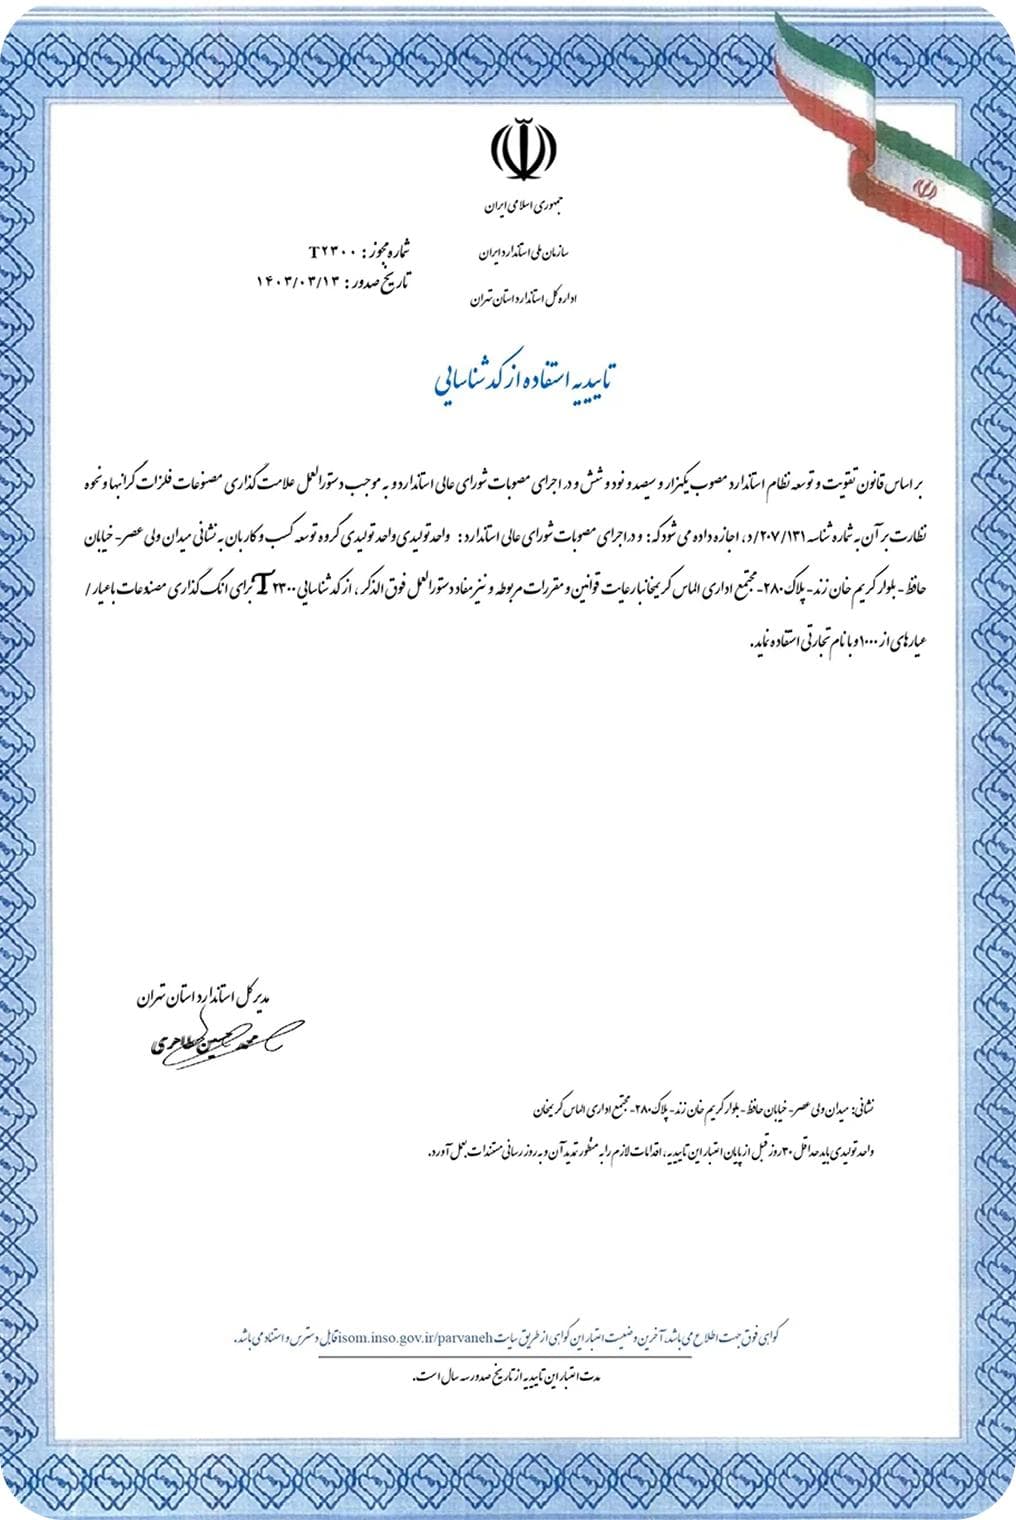 جمهوری اسلامی ایران
سازمان ملی استاندارد ایران
اداره کل استاندارد استان تهران
شماره مجوز : T۲۳۰۰
تاریخ صدور : ۱۴۰۳/۰۳/۱۳
تاییدیه استفاده از کد شناسایی
بر اساس قانون تقویت و توسعه نظام استاندارد مصوب یکهزار و سیصد و نود و شش و در اجرای مصوبات شورای عالی استاندارد و به موجب دستورالعمل علامت گذاری مصنوعات فلزات گرانبها و نحوه
نظارت بر آن به شماره شناسه ۲۰۷/۱۳۱/د، اجازه داده می شود که : و در اجرای مصوبات شورای عالی استاندارد : واحد تولیدی واحد تولیدی گروه توسعه کسب و کار بان به نشانی میدان ولی عصر- خیابان
حافظ - بلوار کریم خان زند- پلاک ۲۸۰- مجتمع اداری الماس کریمخان با رعایت قوانین و مقررات مربوطه و نیز مفاد دستورالعمل فوق الذکر ، از کد شناسایی T۲۳۰۰ برای انگ گذاری مصنوعات با عیار /
عیارهای از ۱۰۰۰ و با نام تجارتی استفاده نماید.
مدیر کل استاندارد استان تهران
محمد حسین طاهری
نشانی: میدان ولی عصر- خیابان حافظ - بلوار کریم خان زند- پلاک ۲۸۰- مجتمع اداری الماس کریمخان
واحد تولیدی باید حداقل ۳۰ روز قبل از پایان اعتبار این تاییدیه، اقدامات لازم را به منظور تمدید آن و به روز رسانی مستندات بعمل آورد.
گواهی فوق جهت اطلاع می باشد. آخرین وضعیت اعتبار این گواهی از طریق سایت isom.inso.gov.ir/parvaneh قابل دسترس و استناد می باشد.
مدت اعتبار این تاییدیه از تاریخ صدور سه سال است.